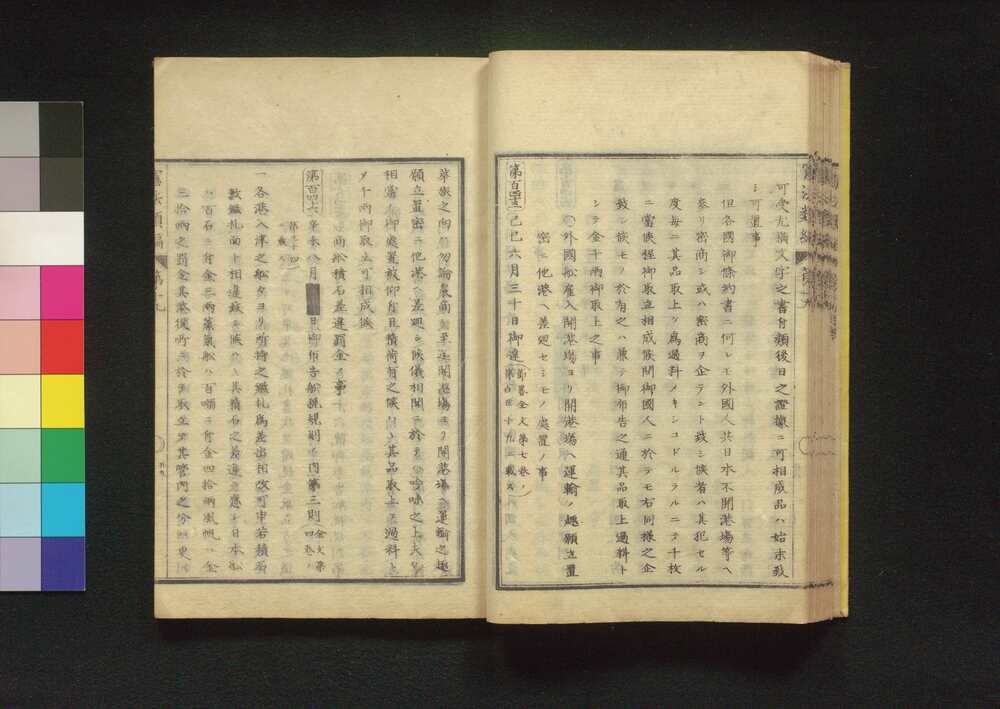 可受尤橫文字之書付類後日之證據ニ可相成品ハ始末致
シ可置事
但各國御條約書ニ何レモ外國人共日本不開港場等ヘ
參リ密商シ或ハ密商ヲ企テント致シ候者ハ其犯セル
度每ニ其品取上ケ爲過料メキシコドルラルニテ千枚
ニ當候程御取立相成候間御國人ニ於テモ右同樣之企
致シ候モノ於有之ハ兼テ御布告之通其品取上過料ト
シテ金千兩御取上之事
外國船雇入開港場ヨリ開港場ヘ運輸ノ趣願立置
密ニ他港ヘ差廻セシモノ處置ノ事
己巳六月三十日御達
華族之向ハ勿論農商ニ至迄開港場ヨリ開港場ヘ運輸之趣
願立置密ニ他港ヘ差廻シ候儀相聞ニ於テハ吟味之上夫々
相當之御處置被仰付且積荷有之候ハヽ其品取上ケ過料ト
メ千兩御取立可相成候
商船積石差違罰金ノ事
辛未八月 日御布告船稅規則ノ内第三則
一各港八津之船々ヨリ所持之鑑札爲差出相改可申若積石
數鑑札面ト相違致シ候ハヽ其積石之差違ニ應シ日本船
ハ百石ニ付金三兩蒸氣船ハ百噸ニ付金四拾兩風帆ハ金
三拾兩之罰金其港役所ニ於テ取立
憲法類編 第十九